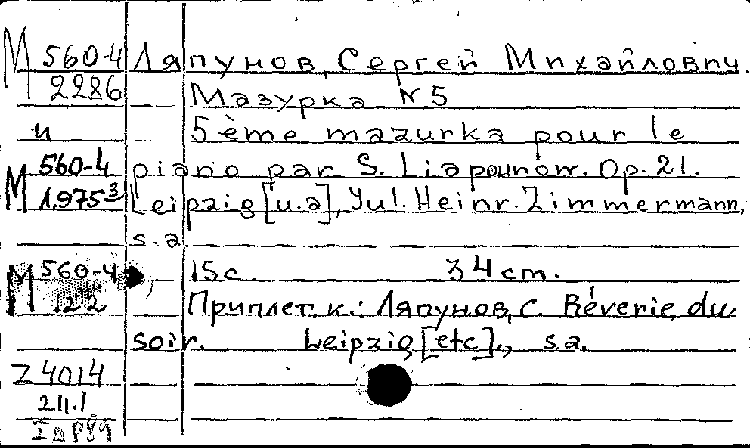 М 560-4 Ляпунов, Сергей Михайлович.
2286 Мазурка N 5
и 5ème mazurka pour le
М 560-4 piano par S. Liapounow. Op. 21.
1975³ Leipzig [u.a], Jul. Heinr. Zimmermann,
s.a
М 560-4 15 с. 34 cm.
122 Приплет. к.: Ляпунов, С. Rêverie du
soir. Leipzig [etc]., s.a.
Z 4014